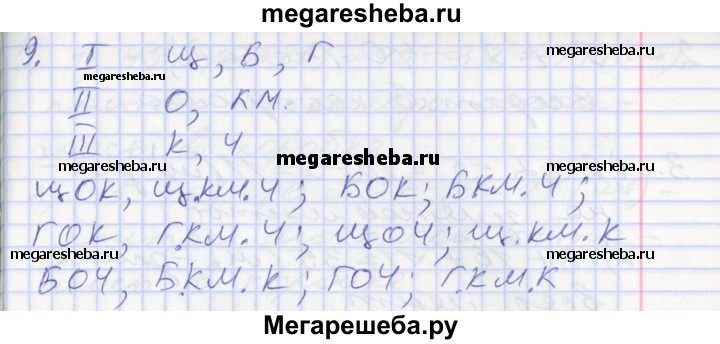 megaresheba.ru
9. I Щ, Б, Г
megaresheba.ru
megaresheba.ru
II О, КМ.
megaresheba.ru
III К, Ч
megaresheba.ru
megaresheba.ru
megaresheba.ru
ЩОК, Щ.КМ.Ч; БОК; БКМ.Ч;
ГОК, Г.КМ.Ч; ЩОЧ; Щ.КМ.К
БОЧ, Б.КМ.К; ГОЧ; Г.КМ.К
Мегарешеба.ру